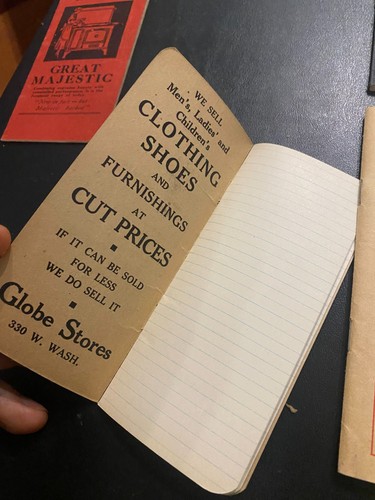 GREAT
MAJESTIC
WE SELL
Men's, Ladies' and
Children's
CLOTHING
SHOES
AND
FURNISHINGS
AT
CUT PRICES
IF IT CAN BE SOLD
FOR LESS
WE DO SELL IT
Globe Stores
330 W. WASH.